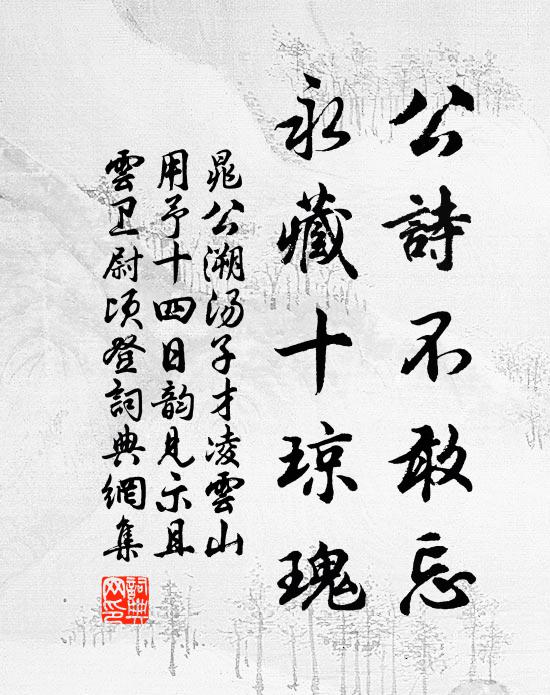 公詩不敢忘
永藏十琼瑰
晁公溯汤子才凌雲山
用予十四日韵見示且
雲卫尉頃登詞典網集
詞典
网印